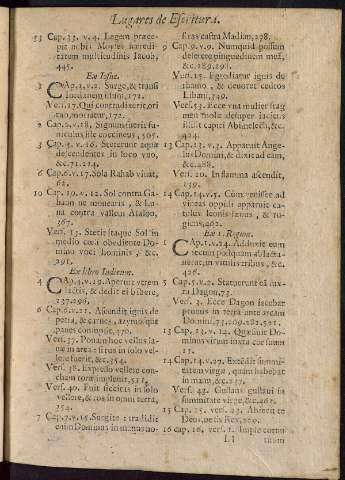 Lugares de Escritura.
33 Cap. 33. v. 4. Legem præcepit
nobis Moyses hæreditatem
multitudinis Iacob,
445.
Ex Iosue.
2 CAp. 2. v. 2. Surge, & transi
Iordanem istum, 172.
Ver. 17. Qui contradixerit, ori
tuo, moriatur, 172.
2 Cap. 2. v. 18. Signum fuerit funiculus
iste coccineus, 505.
3 Cap. 3. v. 16. Steterunt aquæ
descendentes in loco vno,
&c. 71. 214.
6 Cap. 6. v. 17. Sola Rahab vivat,
62.
10 Cap. 10. v. 12. Sol contra Gabaon
ne movearis, & Luna
contra vallem Aialon,
367.
Ver. 13. Stetit itaque Sol in
medio cœli obediente Domino
voci hominis, &c.
291.
Ex libro Iudicum.
4 CAp. 4. v. 19. Aperuit vtrem
lactis, & dedit ei bibere,
137. 296.
6 Cap. 6. v. 21. Ascendit ignis de
petra, & carnes, azymosque
panes consumpsit, 370.
Ver. 37. Ponam hoc vellus lanæ
in area: si ros in solo vellere
fuerit, &c. 354.
Ver. 38. Expresso vellere concham
rore implevit, 511.
Ver. 40. Fuit siccitas in solo
vellere, & ros in omni terra,
354.
7 Cap. 7. v. 15. Surgite: tradidit
enim Dominus in manus nostras
castra Madian, 278.
9 Cap. 9. v. 9. Numquid possum
deserere pinguedinem meã,
&c. 289. 291.
Ver. 15. Egrediatur ignis de
rhamno, & devoret cedros
Libani, 749.
Ver. 53. Ecce vna mulier fragmen
molæ desuper iaciens
illisit capiti Abimelech, &c.
424.
13 Cap. 13. v. 3. Apparuit Angelus
Domini, & dixit ad eam,
&c. 288.
Ver. 20. In flamma ascendit,
139.
14 Cap. 14. v. 5. Cùm venisset ad
vineas oppidi apparuit catulus
leonis sævus, & rugiens,
402.
Ex 1. Regum.
1 CAp. 1. v. 24. Adduxit eum
secum postquam ablactaverat,
in vitulis tribus, &c.
426.
5 Cap. 5. v. 2. Statuerunt eã iuxta
Dagon, 73.
Ver. 3. Ecce Dagon iacebat
pronus in terra ante arcam
Domini, 73. 109. 182. 521.
13 Cap. 13. v. 14. Quæsivit Dominus
virum iuxta cor suum
15.
14 Cap. 14. v. 27. Extẽdit summitatem
virgæ, quam habebat
in manu, &c. 237.
Ver. 43. Gustans gustavi in
summitate virgæ, &c. 467.
15 Cap. 15. vers. 23. Abiecit te
Deus, ne sis Rex, 270.
16 cap. 16. vers. 1. Imple cornu
Ll tuum